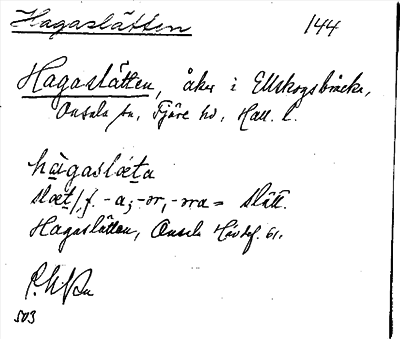 Hagaslätten 144
Hagaslätten, åker i Ellskogsbräcka,
Onsala sn, Fjäre hd, Hall. l.
hàgaslæta
slæt/, f. -a; -or, -ora = slätt.
Hagaslätten, Onsala Hävdef. 61.
503